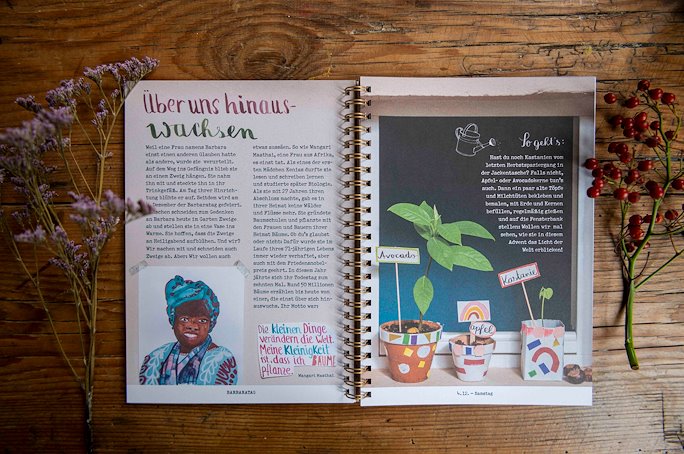 Über uns hinaus-
wachsen
Weil eine Frau namens Barbara
einst einen anderen Glauben hatte
als andere, wurde sie verurteilt.
Auf dem Weg ins Gefängnis blieb sie
an einem Zweig hängen. Sie nahm
ihn mit und steckte ihn in ihr
Trinkgefäß. Am Tag ihrer Hinrich-
tung blühte er auf. Seitdem wird am
4. Dezember der Barbaratag gefeiert.
Menschen schneiden zum Gedenken
an Barbara heute im Garten Zweige
ab und stellen sie in eine Vase ins
Warme. Sie hoffen, dass die Zweige
an Heiligabend aufblühen. Und wir?
Wir machen mit und schneiden auch
Zweige ab. Aber: Wir wollen auch
etwas aussäen. So wie Wangari
Maathai, eine Frau aus Afrika,
es einst tat. Als eines der ers-
ten Mädchen Kenias durfte sie
lesen und schreiben lernen
und studierte später Biologie.
Als sie mit 27 Jahren ihren
Abschluss machte, gab es in
ihrer Heimat keine Wälder
und Flüsse mehr. Sie gründete
Baumschulen und pflanzte mit
den Frauen und Bauern ihrer
Heimat Bäume. Ob du's glaubst
oder nicht: Dafür wurde sie im
Laufe ihres 71-jährigen Lebens
immer wieder verhaftet, aber
auch mit dem Friedensnobel-
preis geehrt. In diesem Jahr
jährte sich ihr Todestag zum
zehnten Mal. Rund 50 Millionen
Bäume erzählen bis heute von
einer, die einst über sich hin-
auswuchs. Ihr Motto war:
Die kleinen Dinge
verändern die Welt.
Meine Kleinigkeit
ist, dass ich BÄUME
pflanze.
Wangari Maathai
BARBARATAG
So geht's:
Hast du noch Kastanien vom
letzten Herbstspaziergang in
der Jackentasche? Falls nicht,
Apfel- oder Avocadokerne tun's
auch. Dann ein paar alte Töpfe
und Milchtüten bekleben und
bemalen, mit Erde und Kernen
befüllen, regelmäßig gießen
und auf die Fensterbank
stellen! Wollen wir mal
sehen, wie sie in diesem
Advent das Licht der
Welt erblicken!
Avocado
Kastanie
Apfel
4.12. – Samstag